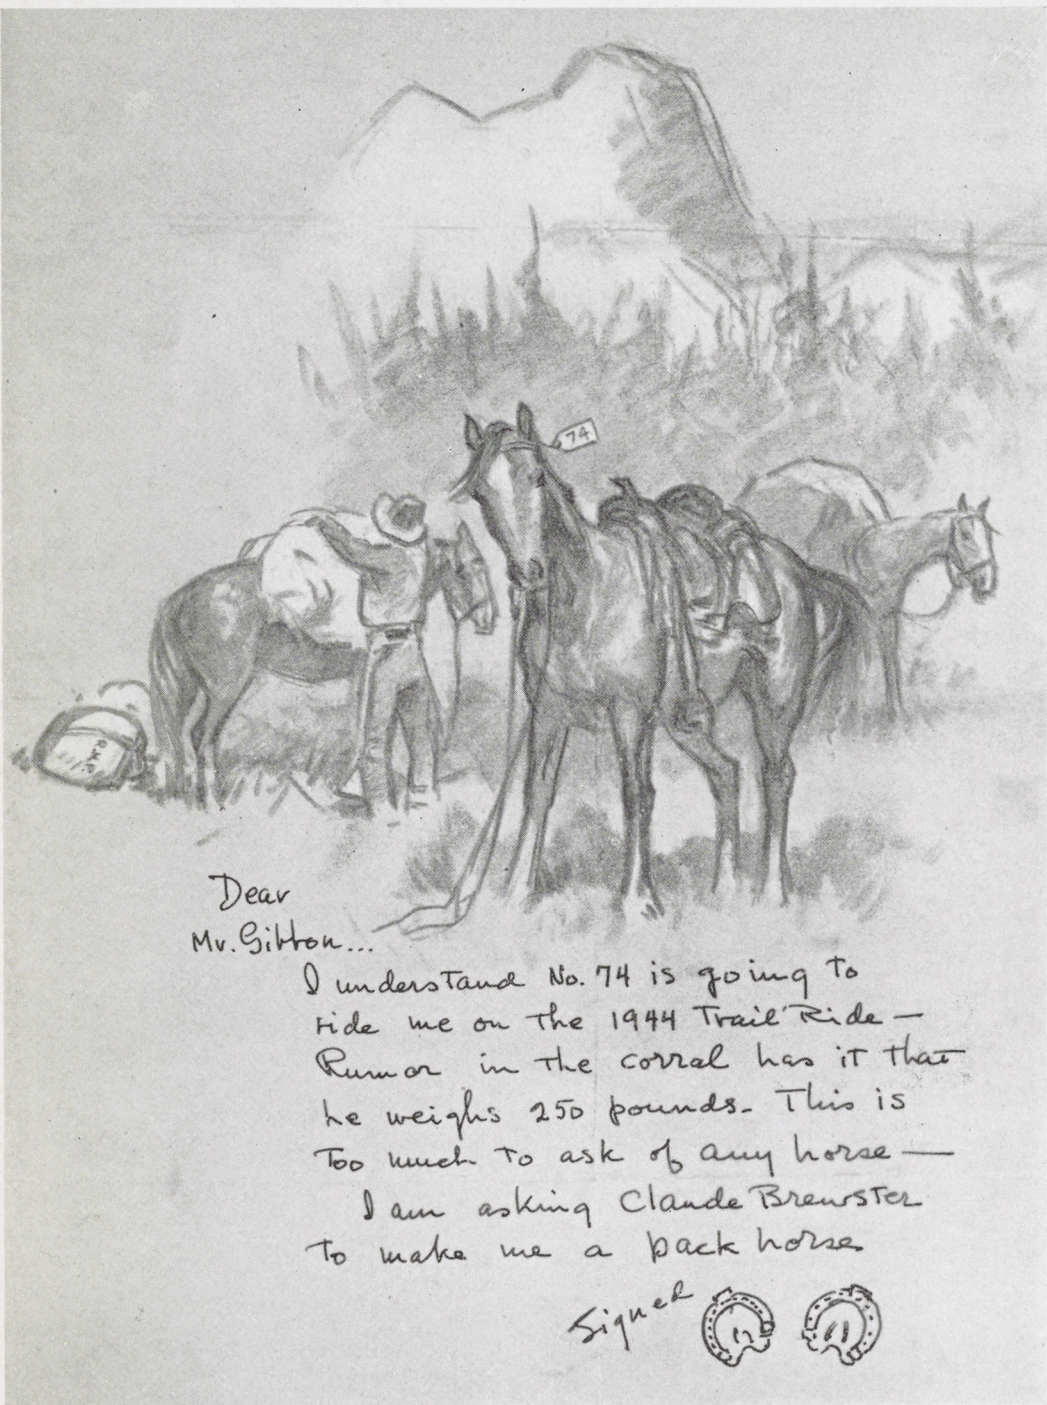 74
Dear
Mr. Gibbon...
I understand No. 74 is going to
ride me on the 1944 Trail Ride —
Rumor in the corral has it that
he weighs 250 pounds. This is
too much to ask of any horse —
I am asking Claude Brewster
to make me a pack horse
Signed